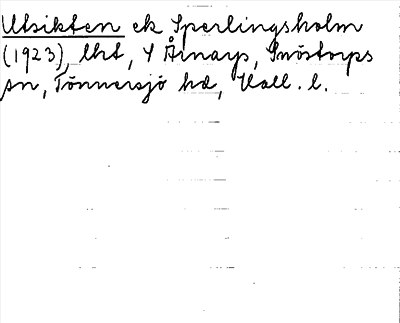 Utsikten ek Sperlingsholm
(1923), lht, Y Årnarp, Snöstorps
sn, Tönnersjö hd, Hall. l.